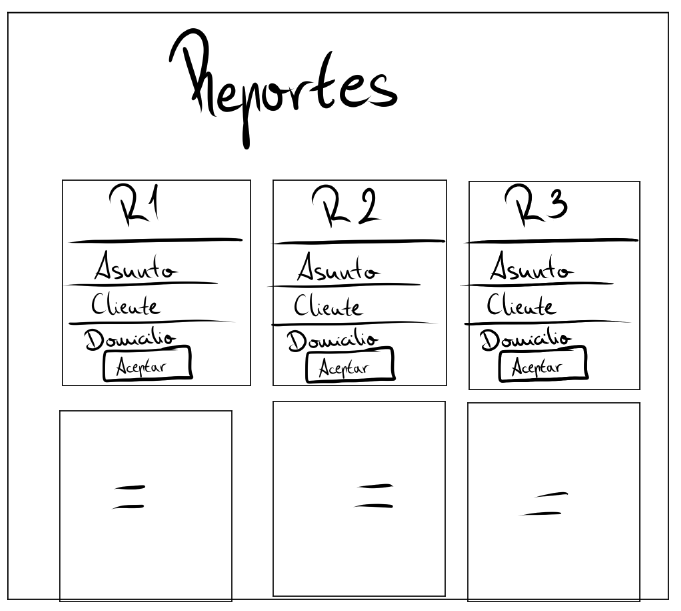 Reportes
R1
Asunto
Cliente
Domicilio
Aceptar
R2
Asunto
Cliente
Domicilio
Aceptar
R3
Asunto
Cliente
Domicilio
Aceptar
=
=
=